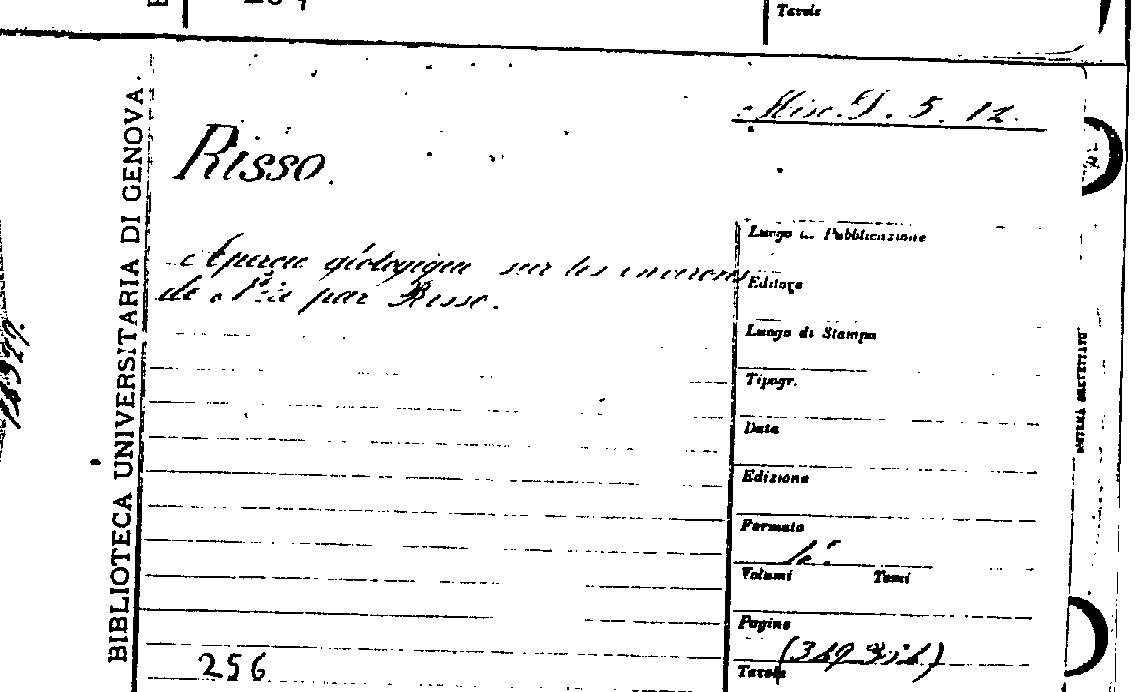 Tavole
Misc. D. 5. 12.
Risso.
Aperçu géologique sur les environs
de par Risso.
BIBLIOTECA UNIVERSITARIA DI GENOVA.
Luogo di Pubblicazione
Editore
Luogo di Stampa
Tipogr.
Data
Edizione
Formato
Volumi Tomi
Pagine
Tavole
256